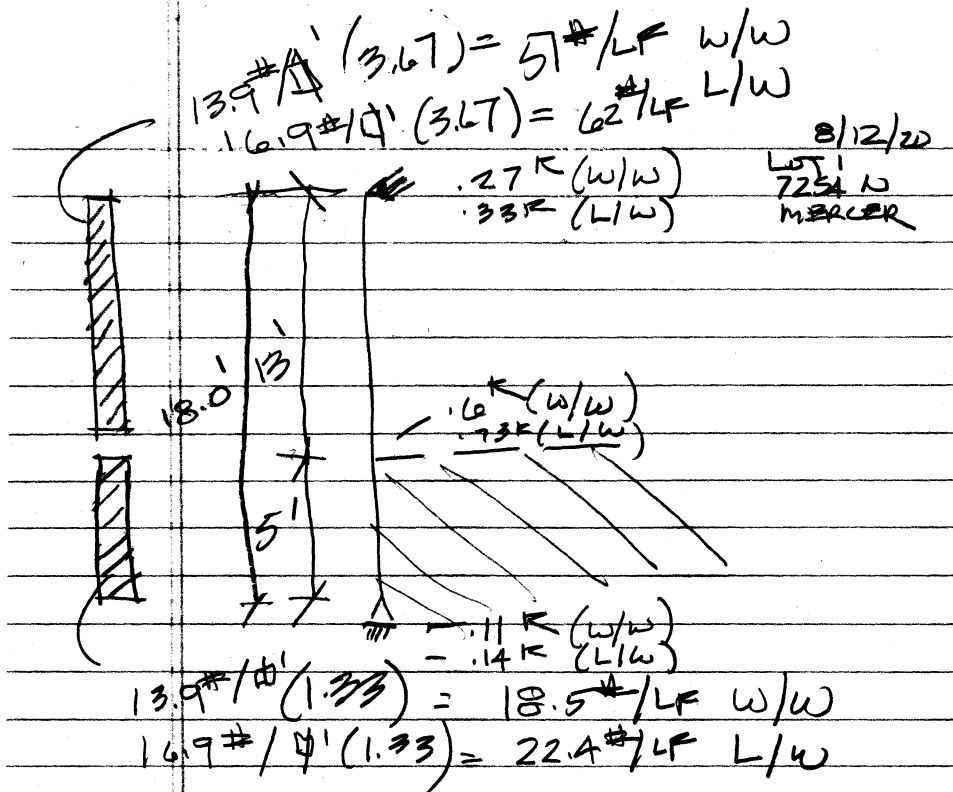 13.9#/⌷' (3.67) = 51#/LF W/W
16.9#/⌷' (3.67) = 62#/LF L/W
8/12/20
LOT 1
7254 N
MERCER
.27K (W/W)
.33K (L/W)
18.0'
13'
.6K (W/W)
.73K (L/W)
5'
-.11K (W/W)
-.14K (L/W)
13.9#/⌷' (1.33) = 18.5#/LF W/W
16.9#/⌷' (1.33) = 22.4#/LF L/W